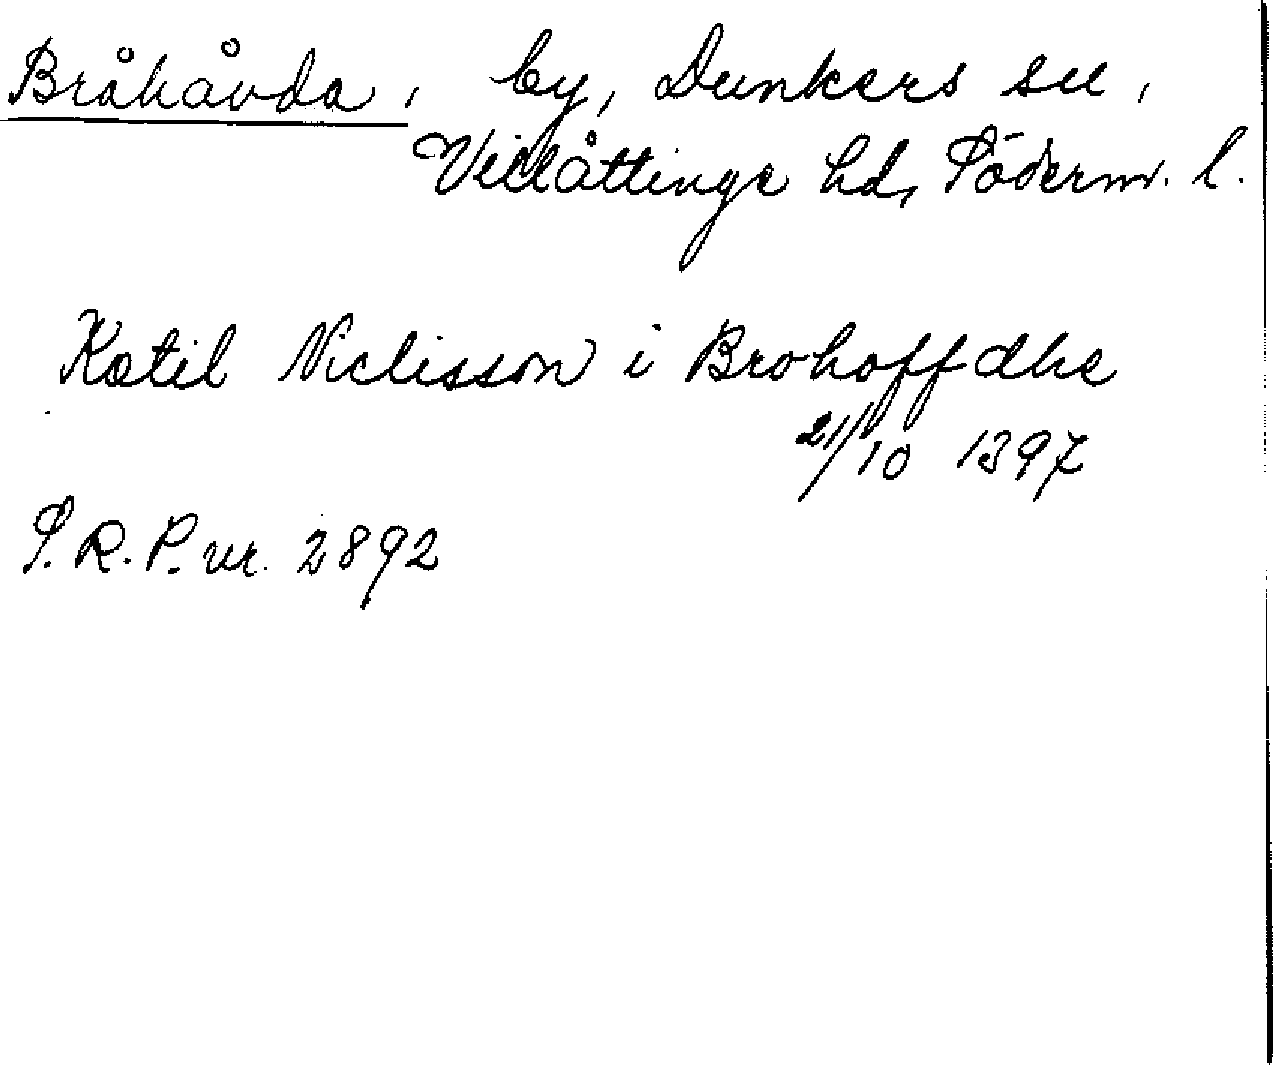 Bråhåvda, by, Dunkers sn,
Villåttinge hd, Söderm. l.
Kætil Niclisson i Brohoffdhe
21/10 1397
S.R.P. nr. 2892